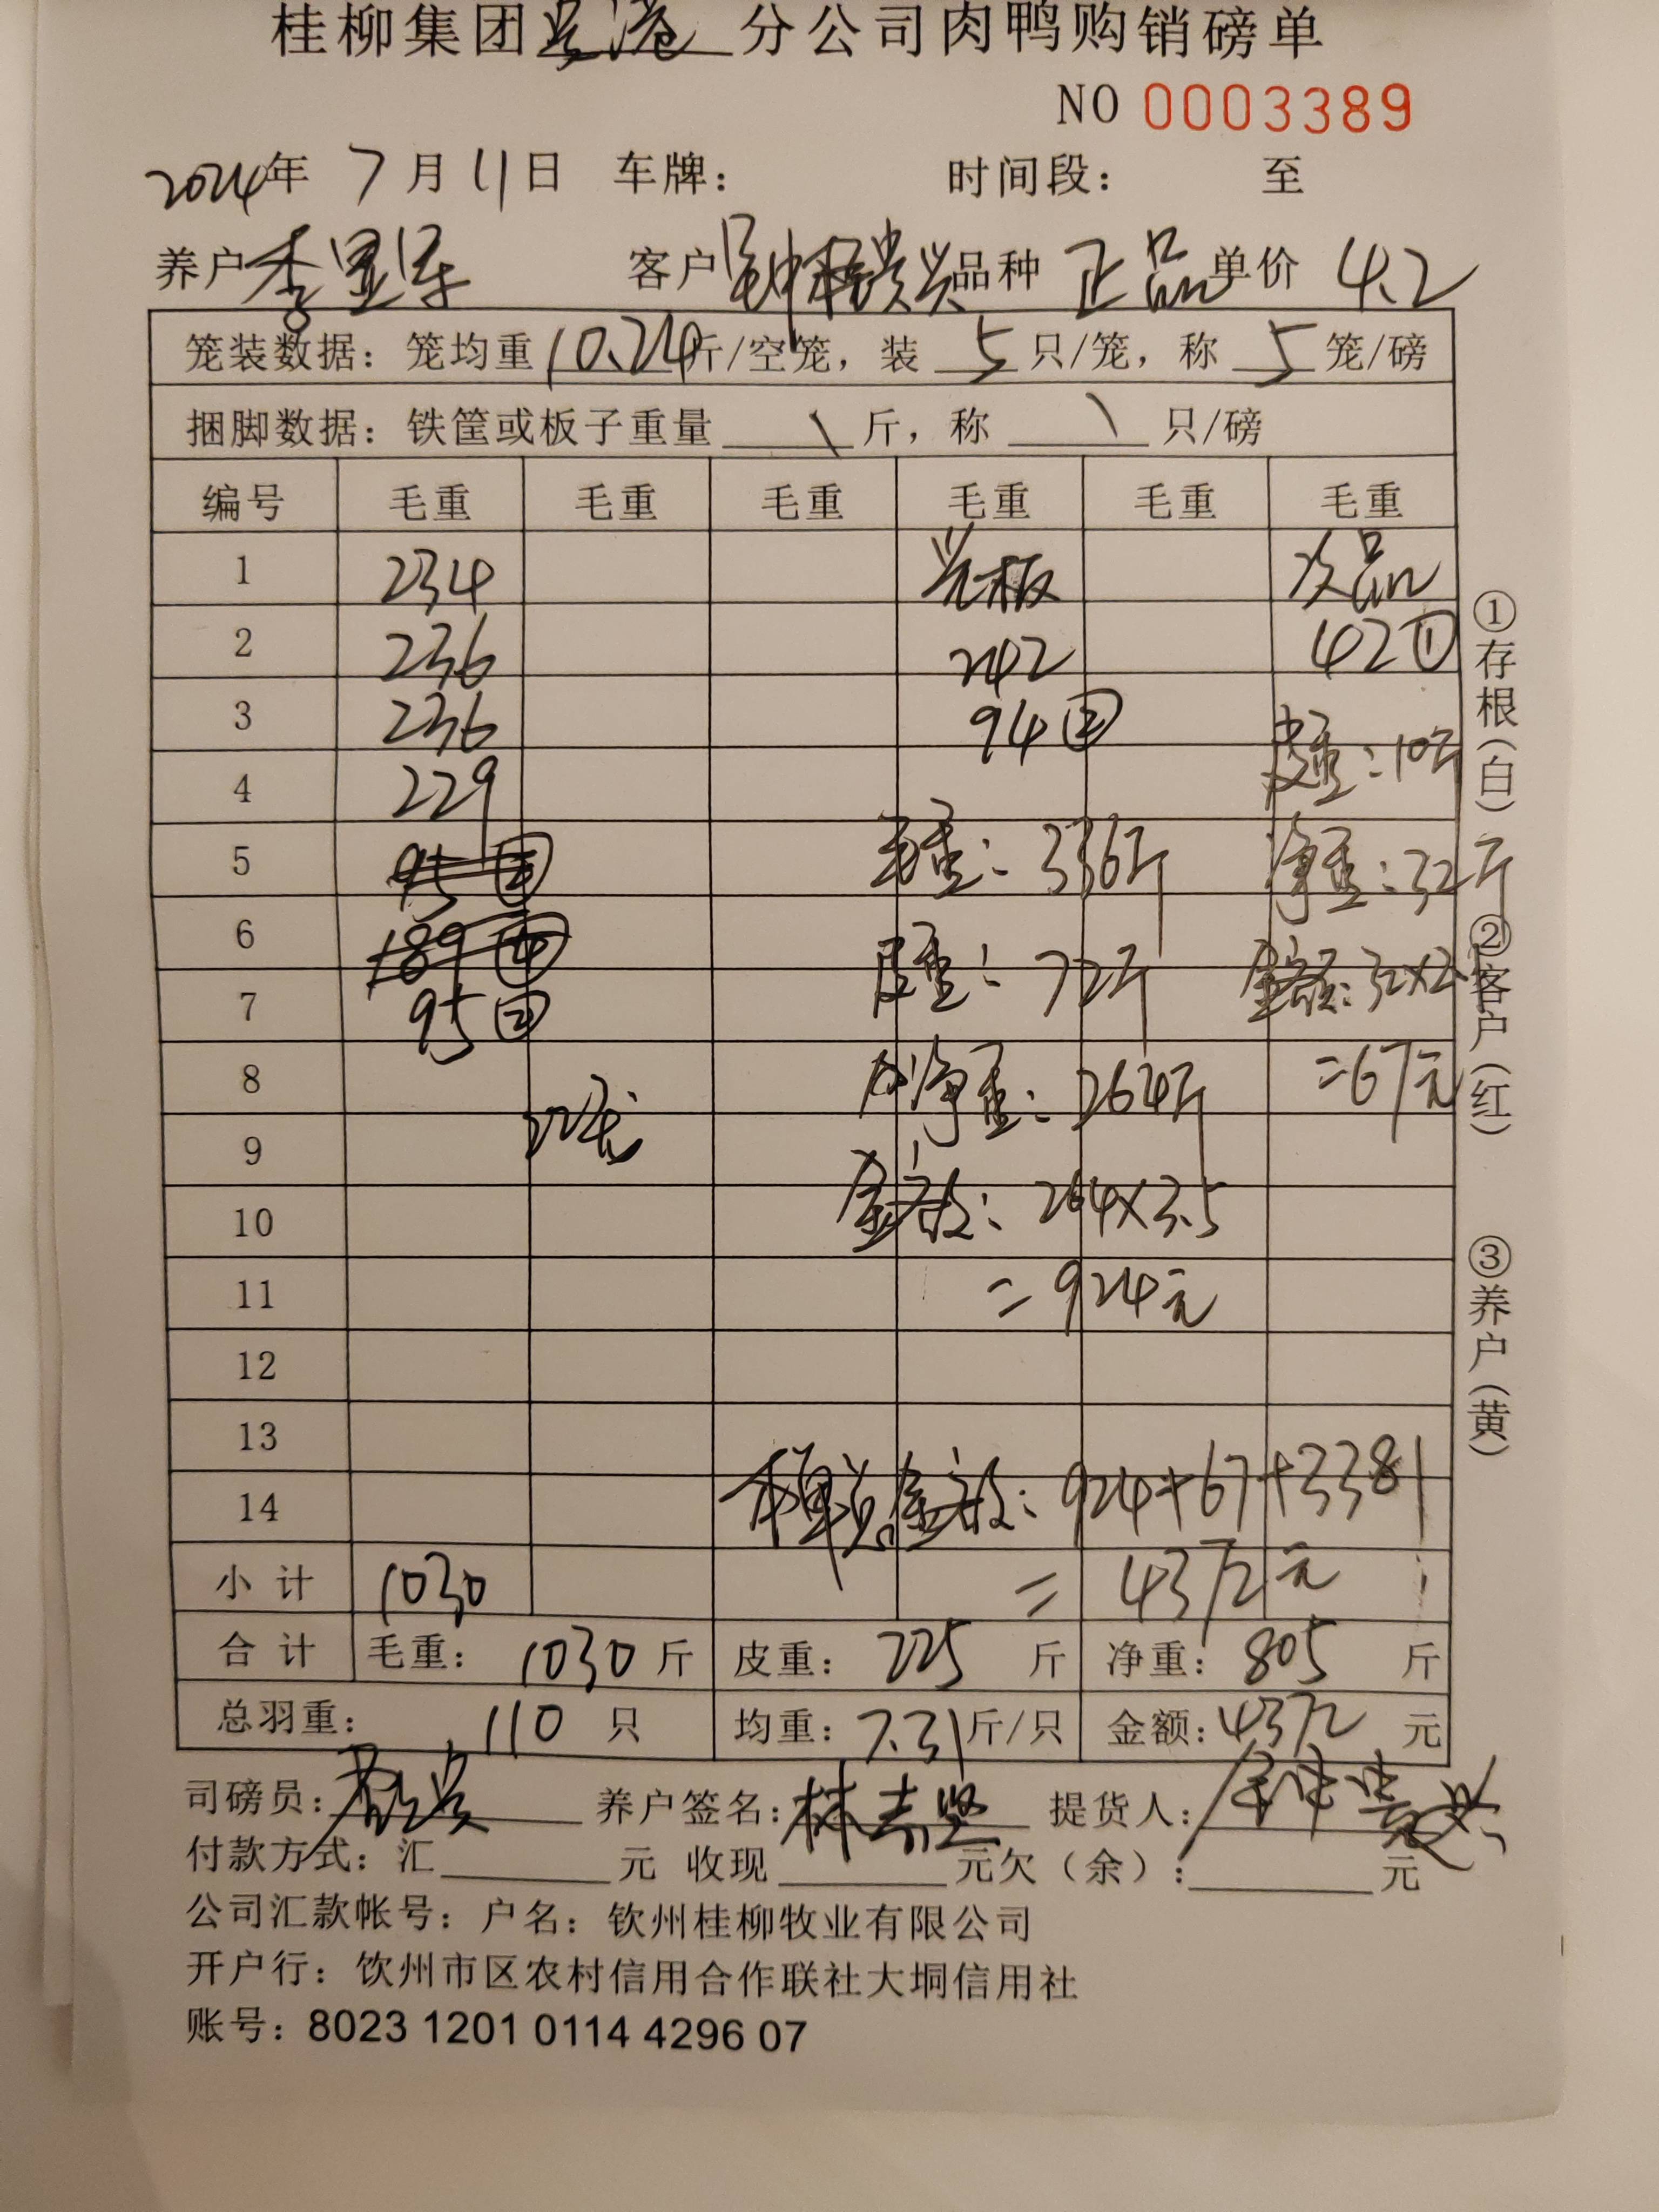 桂柳集团 分公司肉鸭购销磅单
NO 0003389
2024年 7月 11日 车牌： 时间段： 至
养户 李显军 客户 钟贵兴 品种 正品 单价 4.2
笼装数据：笼均重 10.24 斤/空笼，装 5 只/笼，称 5 笼/磅
捆脚数据：铁筐或板子重量 \ 斤，称 \ 只/磅
编号 毛重 毛重 毛重 毛重 毛重 毛重
1 234 光板 次品
2 236 242 42①
3 236 94② 皮重：10斤
4 229
5 95② 毛重：336斤 净重：32斤
6 189④ 皮重：72斤 金额：32×2.1
7 95②
8 净重：264斤 =67元
9 22笼
10 金额：264×3.5
11 =924元
12
13
14 本单总金额：924+67+3381
小计 1030 = 4372元
合计 毛重： 1030 斤 皮重： 225 斤 净重： 805 斤
总羽重： 110 只 均重：7.31斤/只 金额：4372 元
司磅员： 养户签名：林志坚 提货人：钟贵兴
付款方式：汇 元 收现 元欠（余）： 元
公司汇款帐号：户名：钦州桂柳牧业有限公司
开户行：饮州市区农村信用合作联社大垌信用社
账号：8023 1201 0114 4296 07
①存根（白）
②客户（红）
③养户（黄）